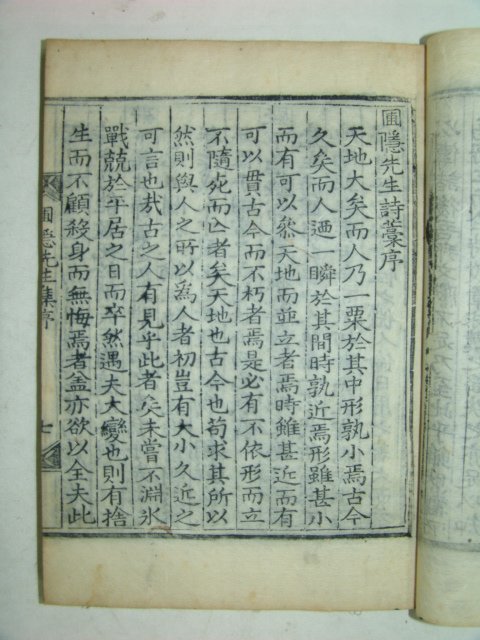 圃隱先生詩藁序
天地大矣而人乃一粟於其中形孰小焉古今
久矣而人迺一瞬於其間時孰近焉形雖甚小
而有可以叅天地而並立者焉時雖甚近而有
可以貫古今而不朽者焉是必有不依形而立
不隨死而亡者矣天地也古今也苟求其所以
然則與人之所以爲人者初豈有大小久近之
可言也哉古之人有見乎此者矣未嘗不淵氷
戰兢於平居之日而卒然遇夫大變也則有捨
生而不顧殺身而無悔焉者盖亦欲以全夫此
圃隱先生集序
七